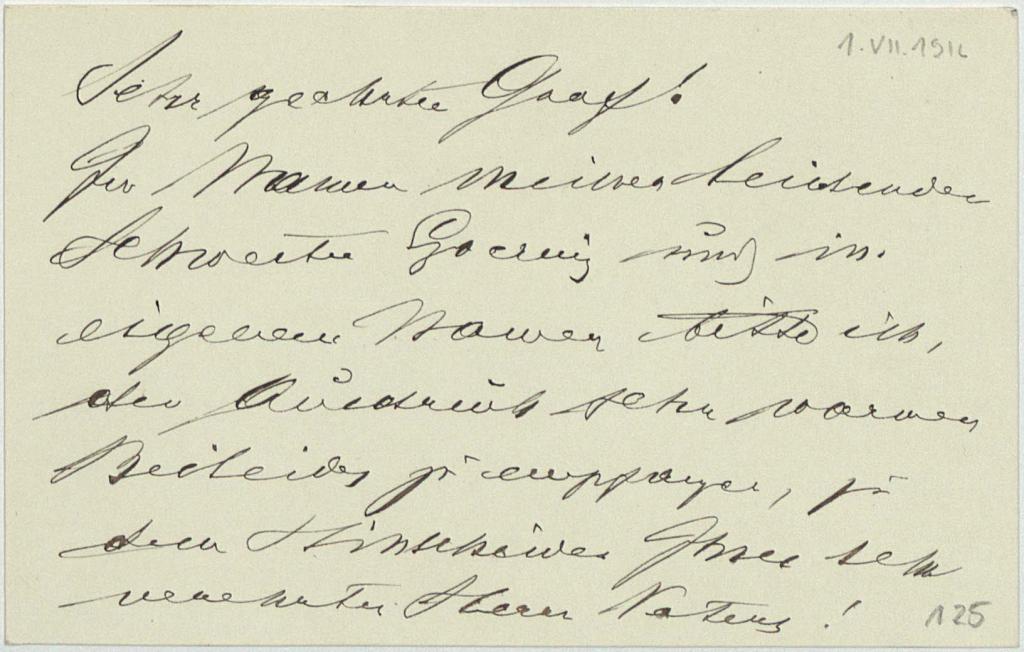 1.VII.191
Sehr geehrter Graf!
Im Namen meiner leidenden
Schwester und im
eigenen Namen bitte ich,
den Ausdruck sehr warmen
Beileides zu empfangen, zu
dem Hinscheiden Ihres sehr
verehrten Herrn Vaters!
125